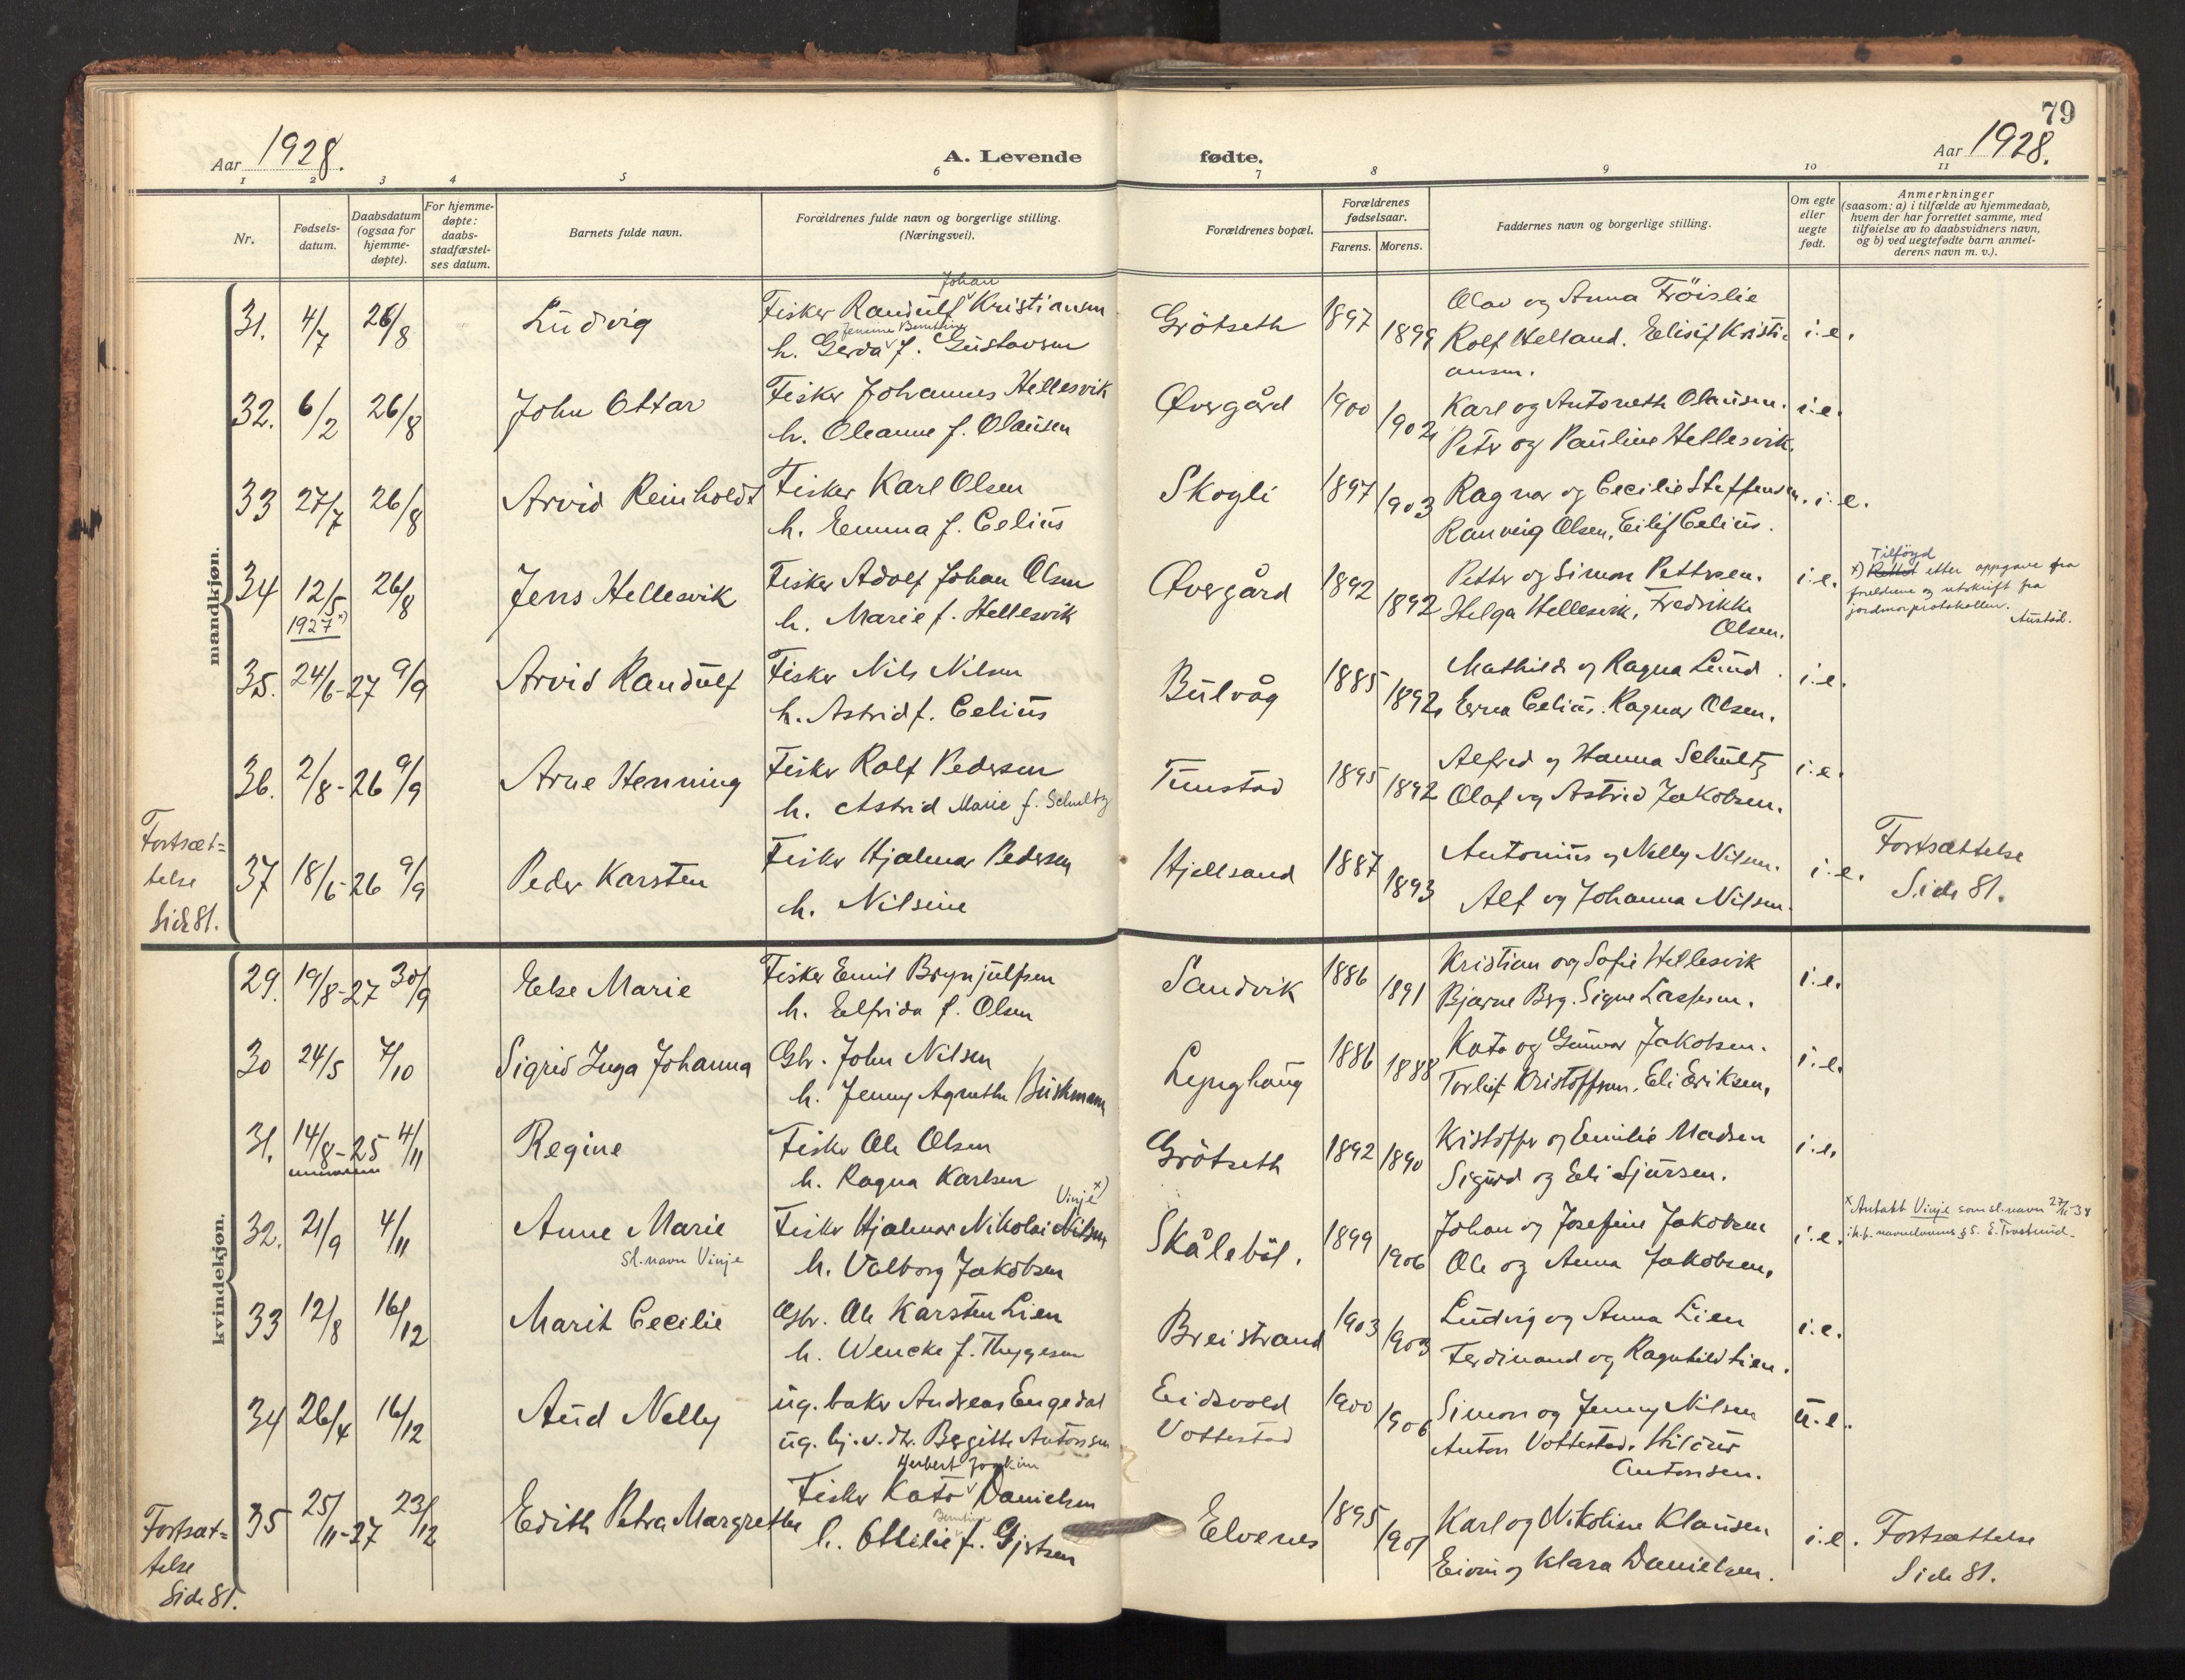 79
Aar 1928.
A. Levende fødte.
Aar 1928.
1 2 3 4 5 6 7 8 9 10 11
Nr.
Fødsels-
datum.
Daabsdatum
(ogsaa for
hjemme-
døpte).
For hjemme-
døpte:
daabs-
stadfæstel-
ses datum.
Barnets fulde navn.
Forældrenes fulde navn og borgerlige stilling.
(Næringsvei).
Forældrenes bopæl.
Forældrenes
fødselsaar.
Farens. Morens.
Faddernes navn og borgerlige stilling.
Om egte
eller
uegte
født.
Anmerkninger
(saasom: a) i tilfælde av hjemmedaab,
hvem der har forrettet samme, med
tilføielse av to daabsvidners navn,
og b) ved uegtefødte barn anmel-
derens navn m. v.).
mandkjøn.
Johan
31. 4/7 26/8 Ludvig Fisker Randulf Kristiansen Grötseth 1897 1899 Olav og Anna Fröislie i.e.
h. Gerda f. Gustavsen Rolf Helland. Elisif Kristi-
ansen.
32. 6/2 26/8 John Ottar Fisker Johannes Hellesvik Øvergård 1900 1902 Karl og Antoneth Olausen. i.e.
h. Oleanne f. Olausen Petr og Pauline Hellesvik.
33 27/7 26/8 Arvid Reinholdt Fisker Karl Olsen Skogli 1897 1903 Ragnar og Cecilie Steffensen. i.e.
h. Emma f. Celius Ranveig Olsen, Eilif Celius.
34 12/5 26/8 Jens Hellesvik Fisker Adolf Johan Olsen Øvergård 1892 1892 Petter og Simon Pettersen. i.e.
1927 x) h. Marie f. Hellesvik Helga Hellesvik, Fredrikke
Olsen.
Tilföyd
x) Rettet etter oppgave fra
foreldrene og utskrift fra
jordmorprotokollen.
Austad.
35. 24/6-27 9/9 Arvid Randulf Fisker Nils Nilsen Bulvåg 1885 1892 Mathilde og Ragna Lund. i.e.
h. Astrid f. Celius Erna Celius. Ragnar Olsen.
36. 2/8-26 9/9 Arne Henning Fisker Rolf Pedersen Tunstad 1895 1892 Alfred og Hanna Schultz i.e.
h. Astrid Marie f. Schultz Olaf og Astrid Jakobsen.
Fortsæt-
telse
Side 81.
37 18/6-26 9/9 Peder Karsten Fisker Hjalmar Pedersen Hjellsand 1887 1893 Antonius og Nelly Nilsen. i.e.
h. Nilsine Alf og Johanna Nilsen.
Fortsættelse
Side 81.
kvindekjøn.
29. 19/8-27 30/9 Else Marie Fisker Emil Brynjulfsen Sandvik 1886 1891 Kristian og Sofie Hellesvik i.e.
h. Elfrida f. Olsen Bjarne Berg. Signe Lassesen.
30 24/5 7/10 Sigrid Inga Johanna Gbr. John Nilsen Lynghaug 1886 1888 Kato og Gunvor Jakobsen. i.e.
h. Jenny Agnethe Buschmann Torleif Kristoffersen. Eli Eriksen.
31. 14/8-25 4/11 Regine Fisker Ole Olsen Grötseth 1892 1890 Kristoffer og Emilie Madsen i.e.
h. Ragna Karlsen Sigurd og Eli Sjursen.
Vinje x)
32. 21/9 4/11 Anne Marie Fisker Hjalmar Nikolai Nilsen Skåleböl. 1899 1906 Johan og Josefine Jakobsen i.e.
sl.navn Vinje h. Valborg Jakobsen Ole og Anna Jakobsen.
x Antatt Vinje som sl.navn 27/11-34
i h.t. navnelovens § 5. E. Trostrud.
33 12/8 16/12 Marit Cecilie Gbr. Ole Karsten Lien Breistrand 1903 1903 Ludvig og Anna Lien i.e.
h. Wencke f. Thygesen Ferdinand og Ragnhild Lien.
34 26/4 16/12 Aud Nelly ug. baker Andreas Engedal Eidsvold 1900 1906 Simon og Jenny Nilsen u.e.
ug. hj.v.dtr. Bergitte Antonsen Vottestad Anton Vottestad. Hildur
Antonsen.
Herbert Joakim
35 25/11-27 23/12 Edith Petra Margrethe Fisker Kato Danielsen Elvenes 1895 1901 Karl og Nikoline Klausen i.e.
h. Ottilie f. Gjertsen Eivin og Klara Danielsen.
Fortsæt-
telse
Side 81.
Fortsættelse
Side 81.